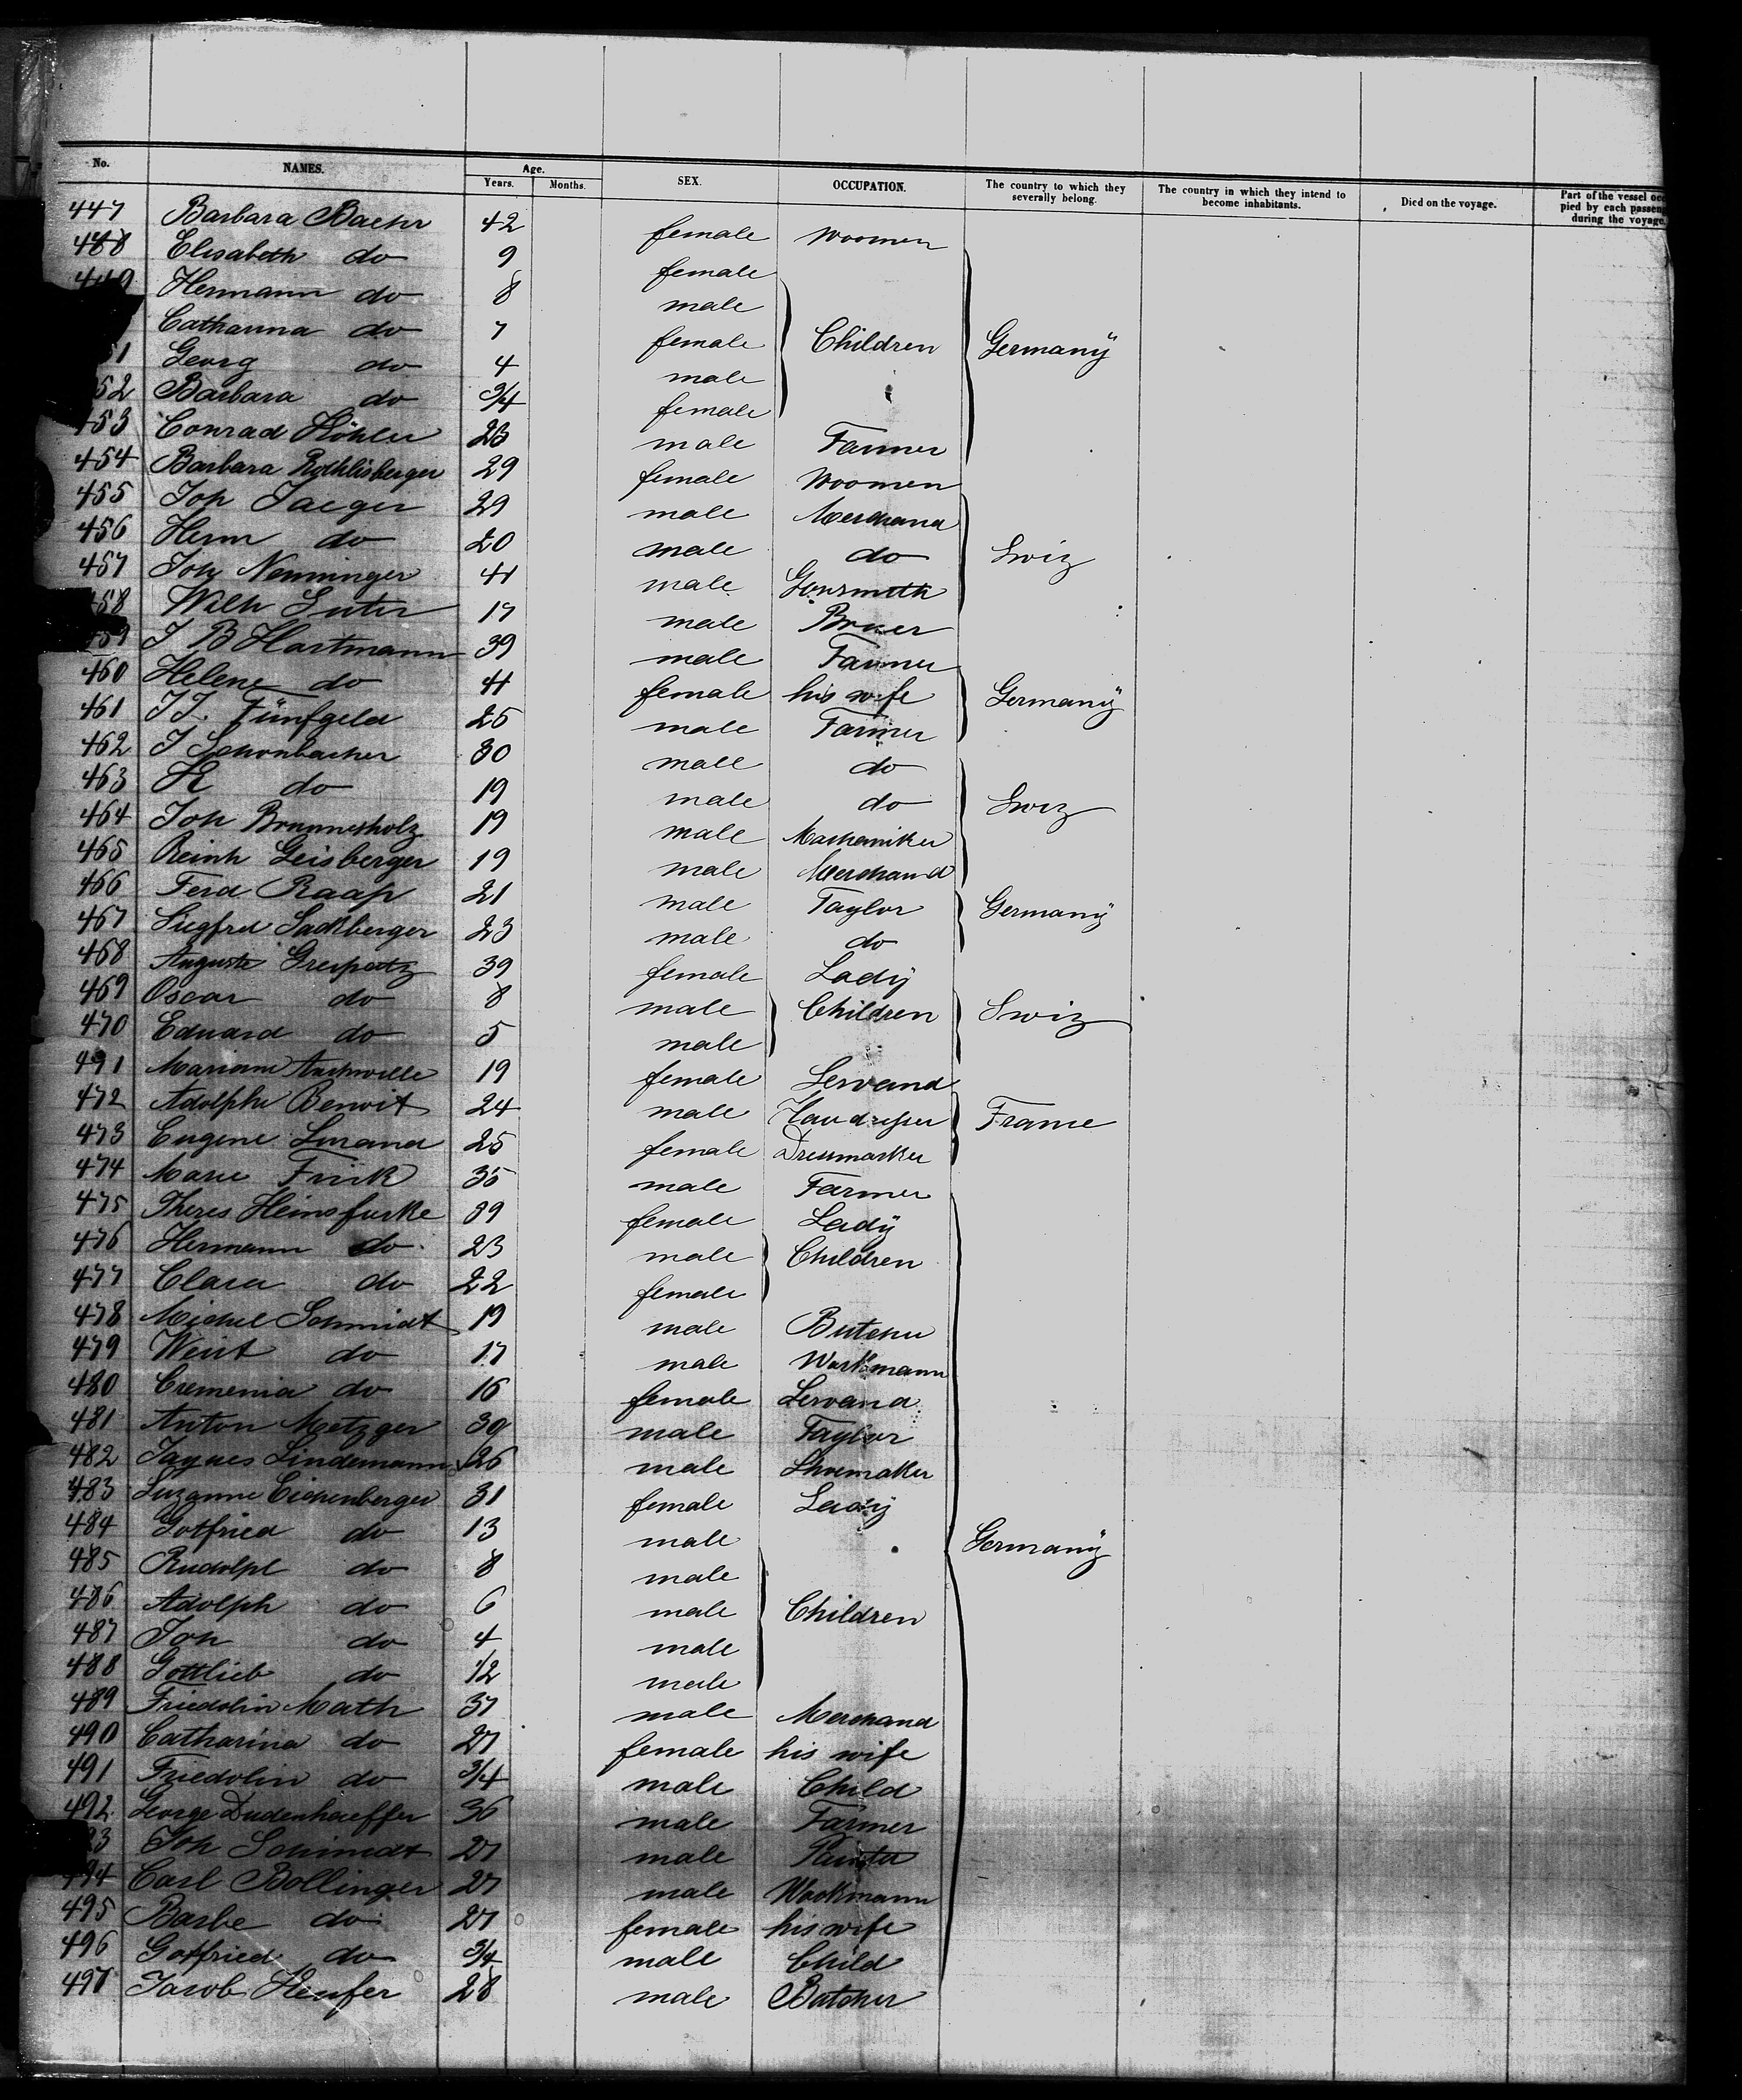 No. NAMES. Age. Years. Months. SEX. OCCUPATION. The country to which they severally belong. The country in which they intend to become inhabitants. Died on the voyage. Part of the vessel occ pied by each passeng during the voyage.
447 Barbara Baehr 42 female Woomen
488 Elisabeth do 9 female
449 Hermann do 8 male
Catharina do 7 female Children Germanÿ
51 Georg do 4 male
452 Barbara do 3/4 female
453 Conrad Höhler 23 male Farmer
454 Barbara Rothlisberger 29 female Woomen
455 Joh Jaeger 29 male Merchand
456 Herm do 20 male do Swiz
457 Joh Nenninger 41 male
458 Wilh Suter 17 male Bruer
459 J B Hartmann 39 male Farmer
460 Helene do 41 female his wife Germanÿ
461 J J. Fünfgeld 25 male Farmer
462 J Schonbacher 30 male do
463 H do 19 male do Swiz
464 Joh Brunnesholz 19 male Machaniker
465 Reinh Geisberger 19 male Merchand
466 Ferd Raap 21 male Taylor Germanÿ
467 Siegfred Sackberger 23 male do
468 Auguste 39 female Ladÿ
469 Oscar do 8 male Children Swiz
470 Eduard do 5 male
491 Mariam 19 female Servand
472 Adolphe Benoit 24 male France
473 Eugene 25 female Dressmarker
474 Marie Frick 35 male Farmer
475 Theres Heinsfurke 39 female Ladÿ
476 Hermann do 23 male Children
477 Clara do 22 female
478 Michel Schmidt 19 male Butcher
479 do 17 male Workmann
480 Cremenia do 16 female Servand
481 Anton Metzger 30 male Taylor
482 Jaques Lindemann 26 male Shoemaker
483 Suzanne Eichenberger 31 female Ladÿ
484 Gotfried do 13 male Germanÿ
485 Rudolph do 8 male
486 Adolph do 6 male Children
487 Joh do 4 male
488 Gottlieb do 1/2 male
489 Friedolin Math 37 male Merchand
490 Catharina do 27 female his wife
491 Friedolin do 3/4 male Child
492 George Dudenhaeffer 36 male Farmer
93 Joh Schmidt 27 male Painter
494 Carl Bollinger 27 male Workmann
495 Barbe do 27 female his wife
496 Gotfried do 3/4 male Child
497 Jacob Heufer 28 male Butcher